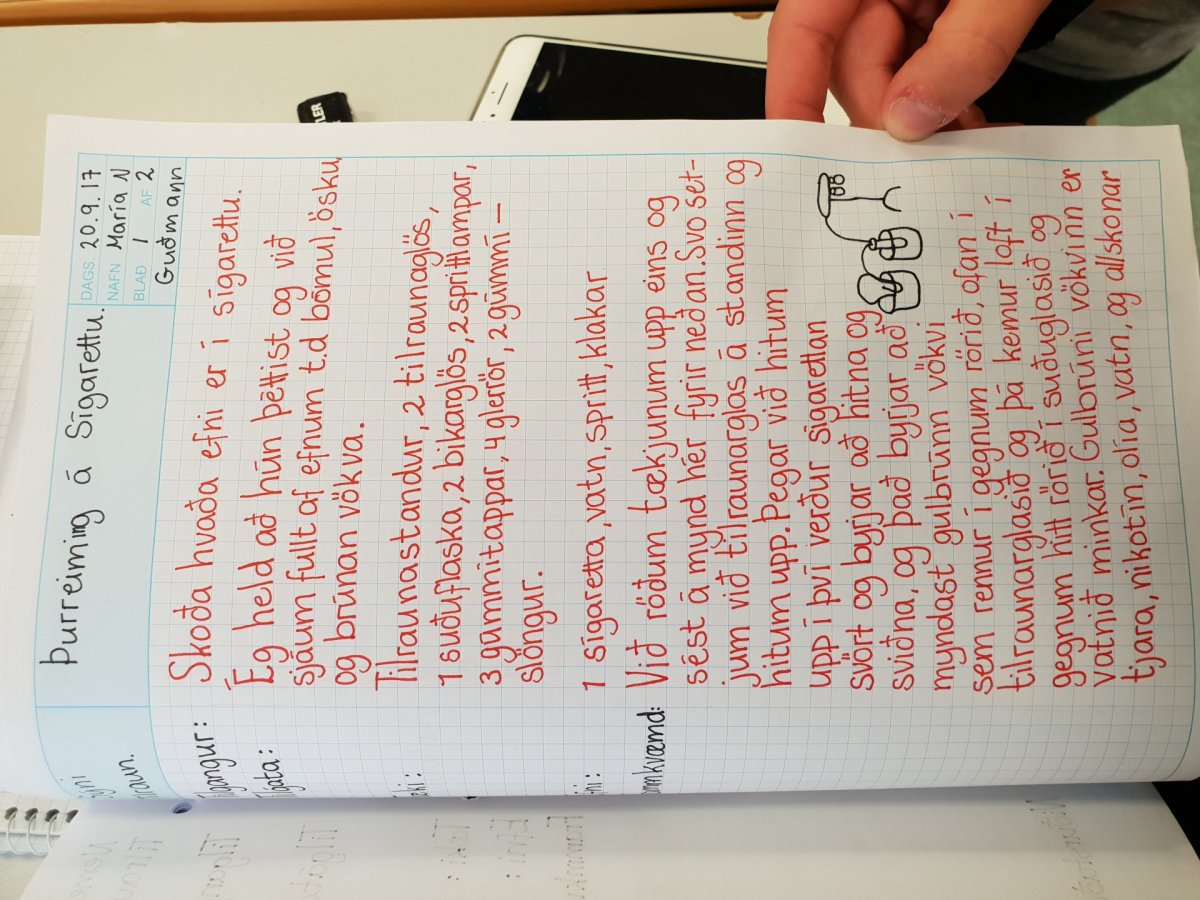 Þurreiming á Sígarettu.
DAGS 20.9.17
NAFN María N
BLAÐ 1 AF 2
Guðmann
Skoða hvaða efni er í sígarettu.
Ég held að hún þéttist og við
sjáum fullt af efnum t.d bómul, ösku
og brúnan vökva.
Tilraunastandur, 2 tilraunaglös,
1 suðuflaska, 2 bikarglös, 2 sprittlampar,
3 gúmmítappar, 4 glerrör, 2 gúmmí-
slöngur.
1 sígaretta, vatn, spritt, klakar
Framkvæmd:
Við röðum tækjunum upp eins og
sést á mynd hér fyrir neðan. Svo set-
jum við tilraunarglas á standinn og
hitum upp. Þegar við hitum
upp í því verður sígarettan
svört og byrjar að hitna og
sviðna, og það byrjar að
myndast gulbrúnn vökvi
sem rennur í gegnum rörið, ofan í
tilraunarglasið og þá kemur loft í
gegnum hitt rörið í suðuglasið og
vatnið minkar. Gulbrúni vökvinn er
tjara, nikótín, olía, vatn, og allskonar